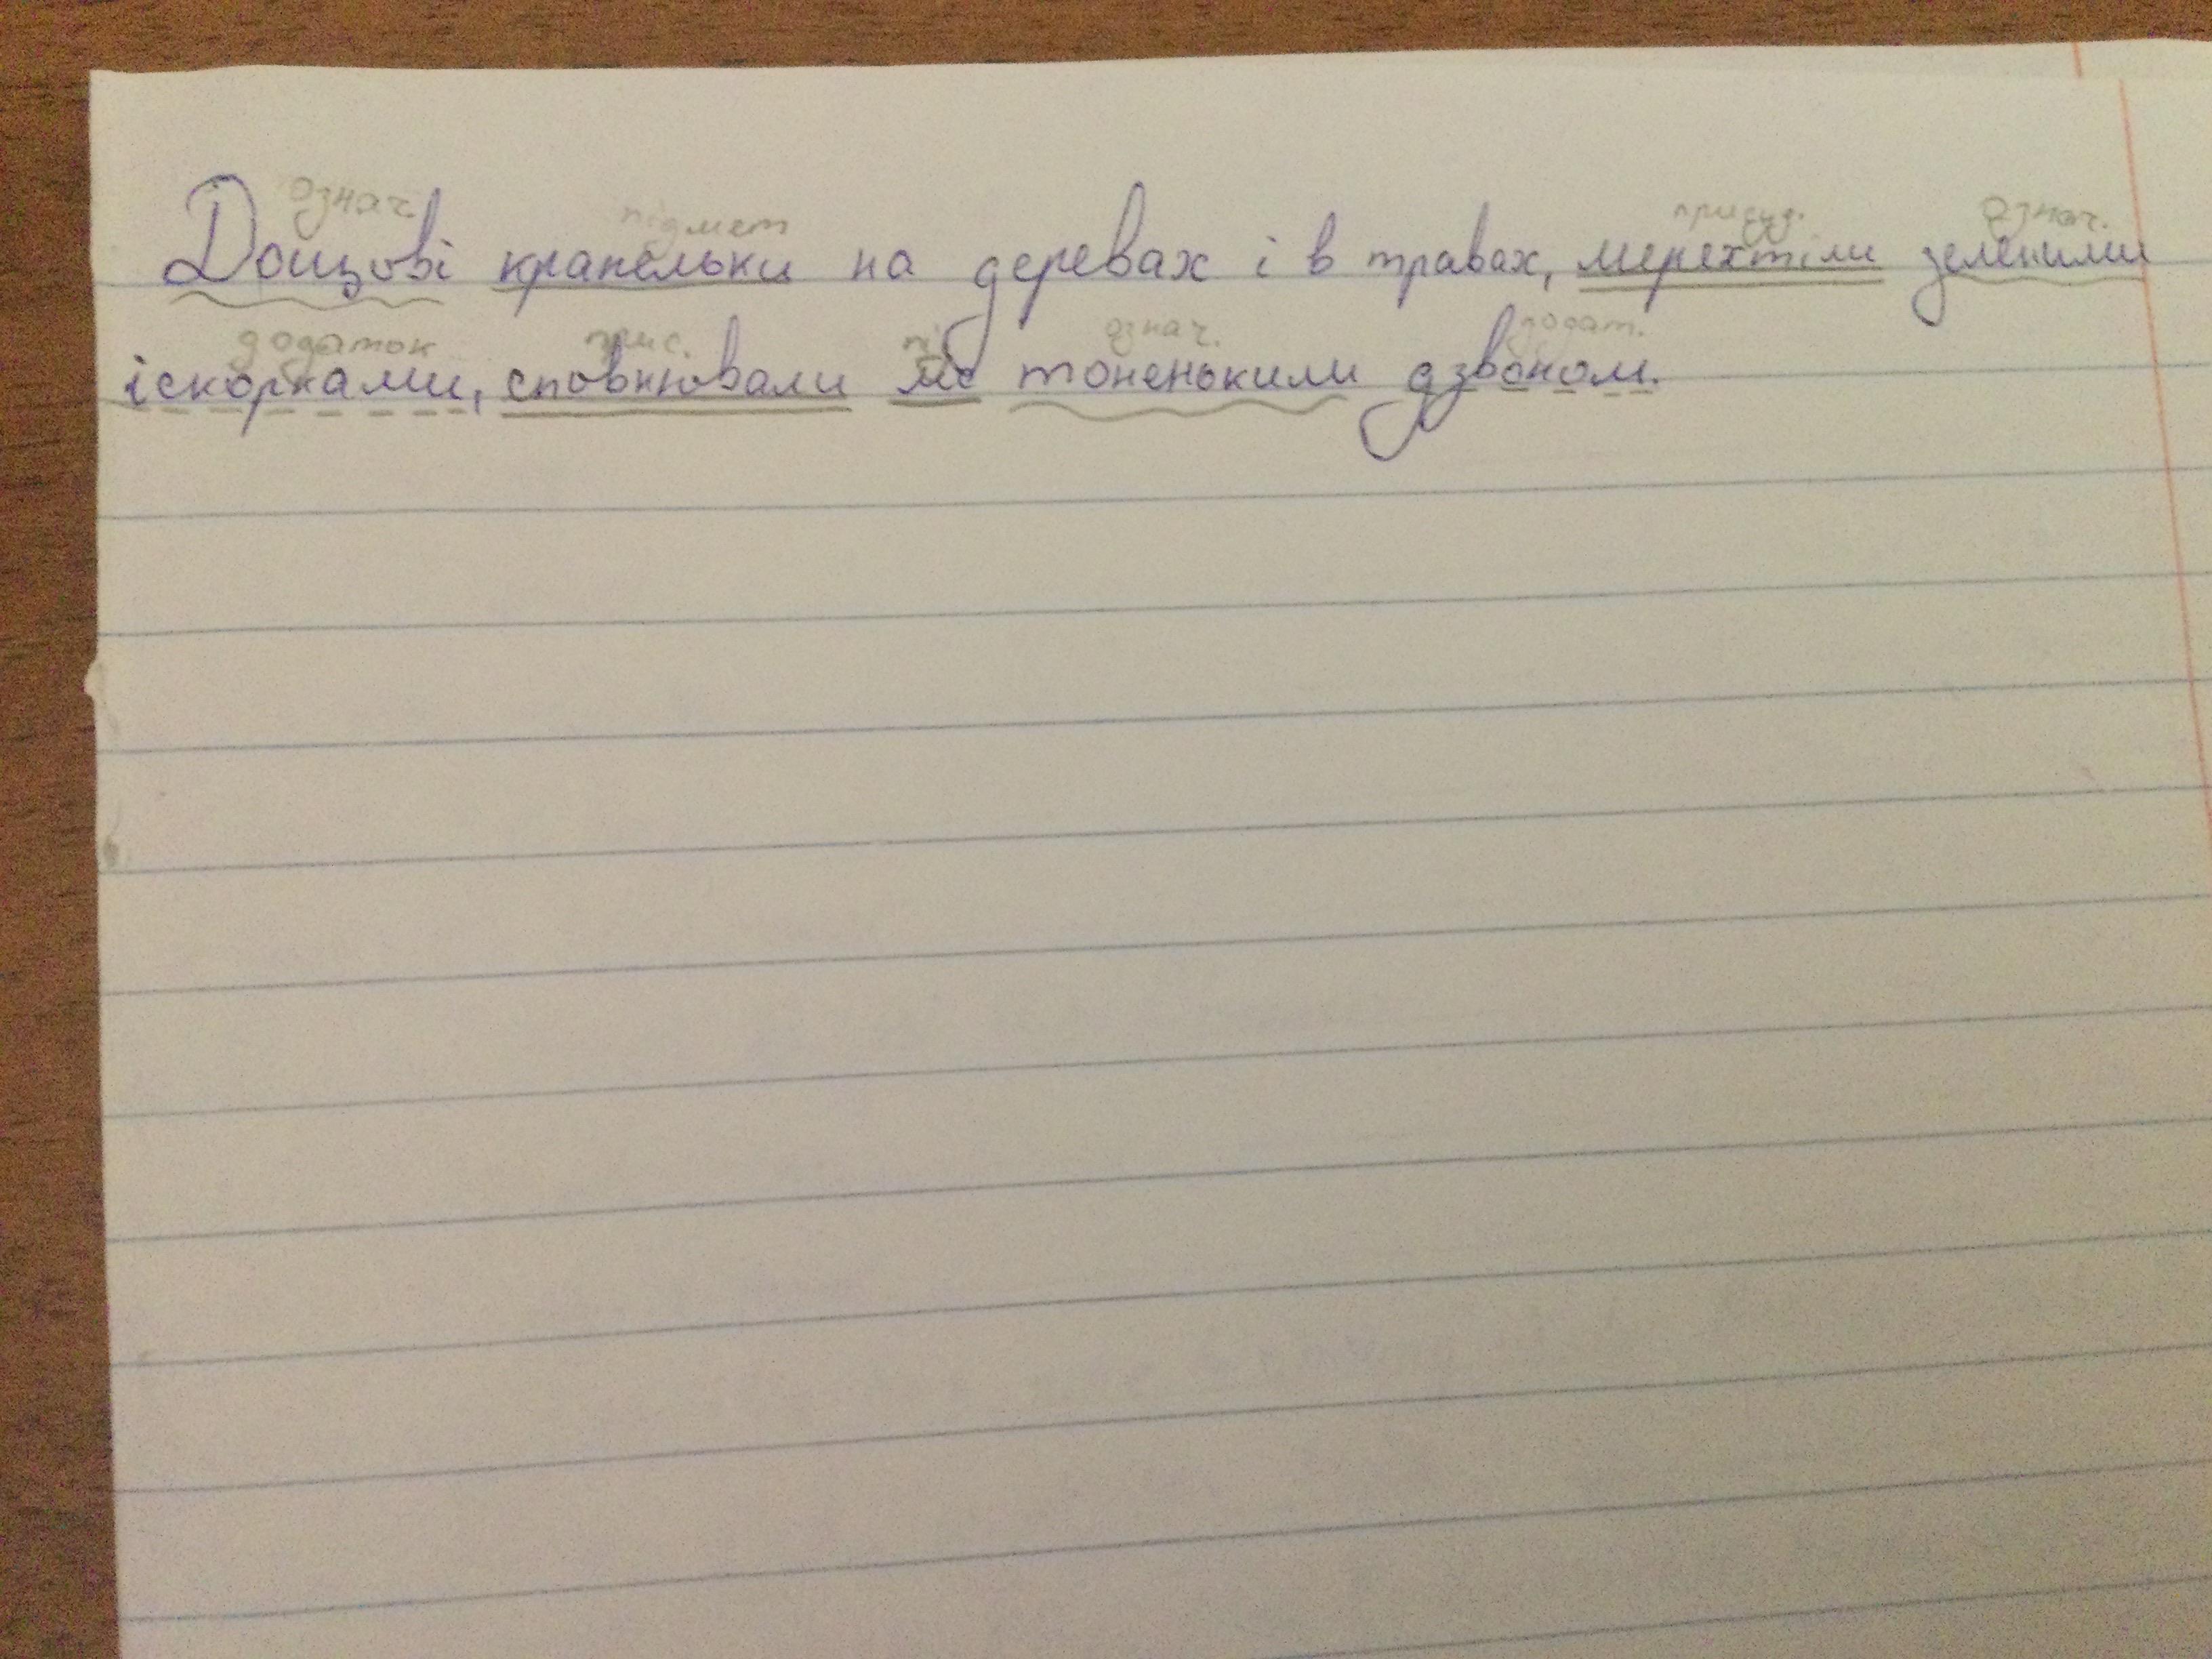 означ. підмет присуд. означ.
Дощові крапельки на деревах і в травах, мерехтіли зеленими
додаток прис. під означ. додат.
іскорками, сповнювали ліс тоненьким дзвоном.